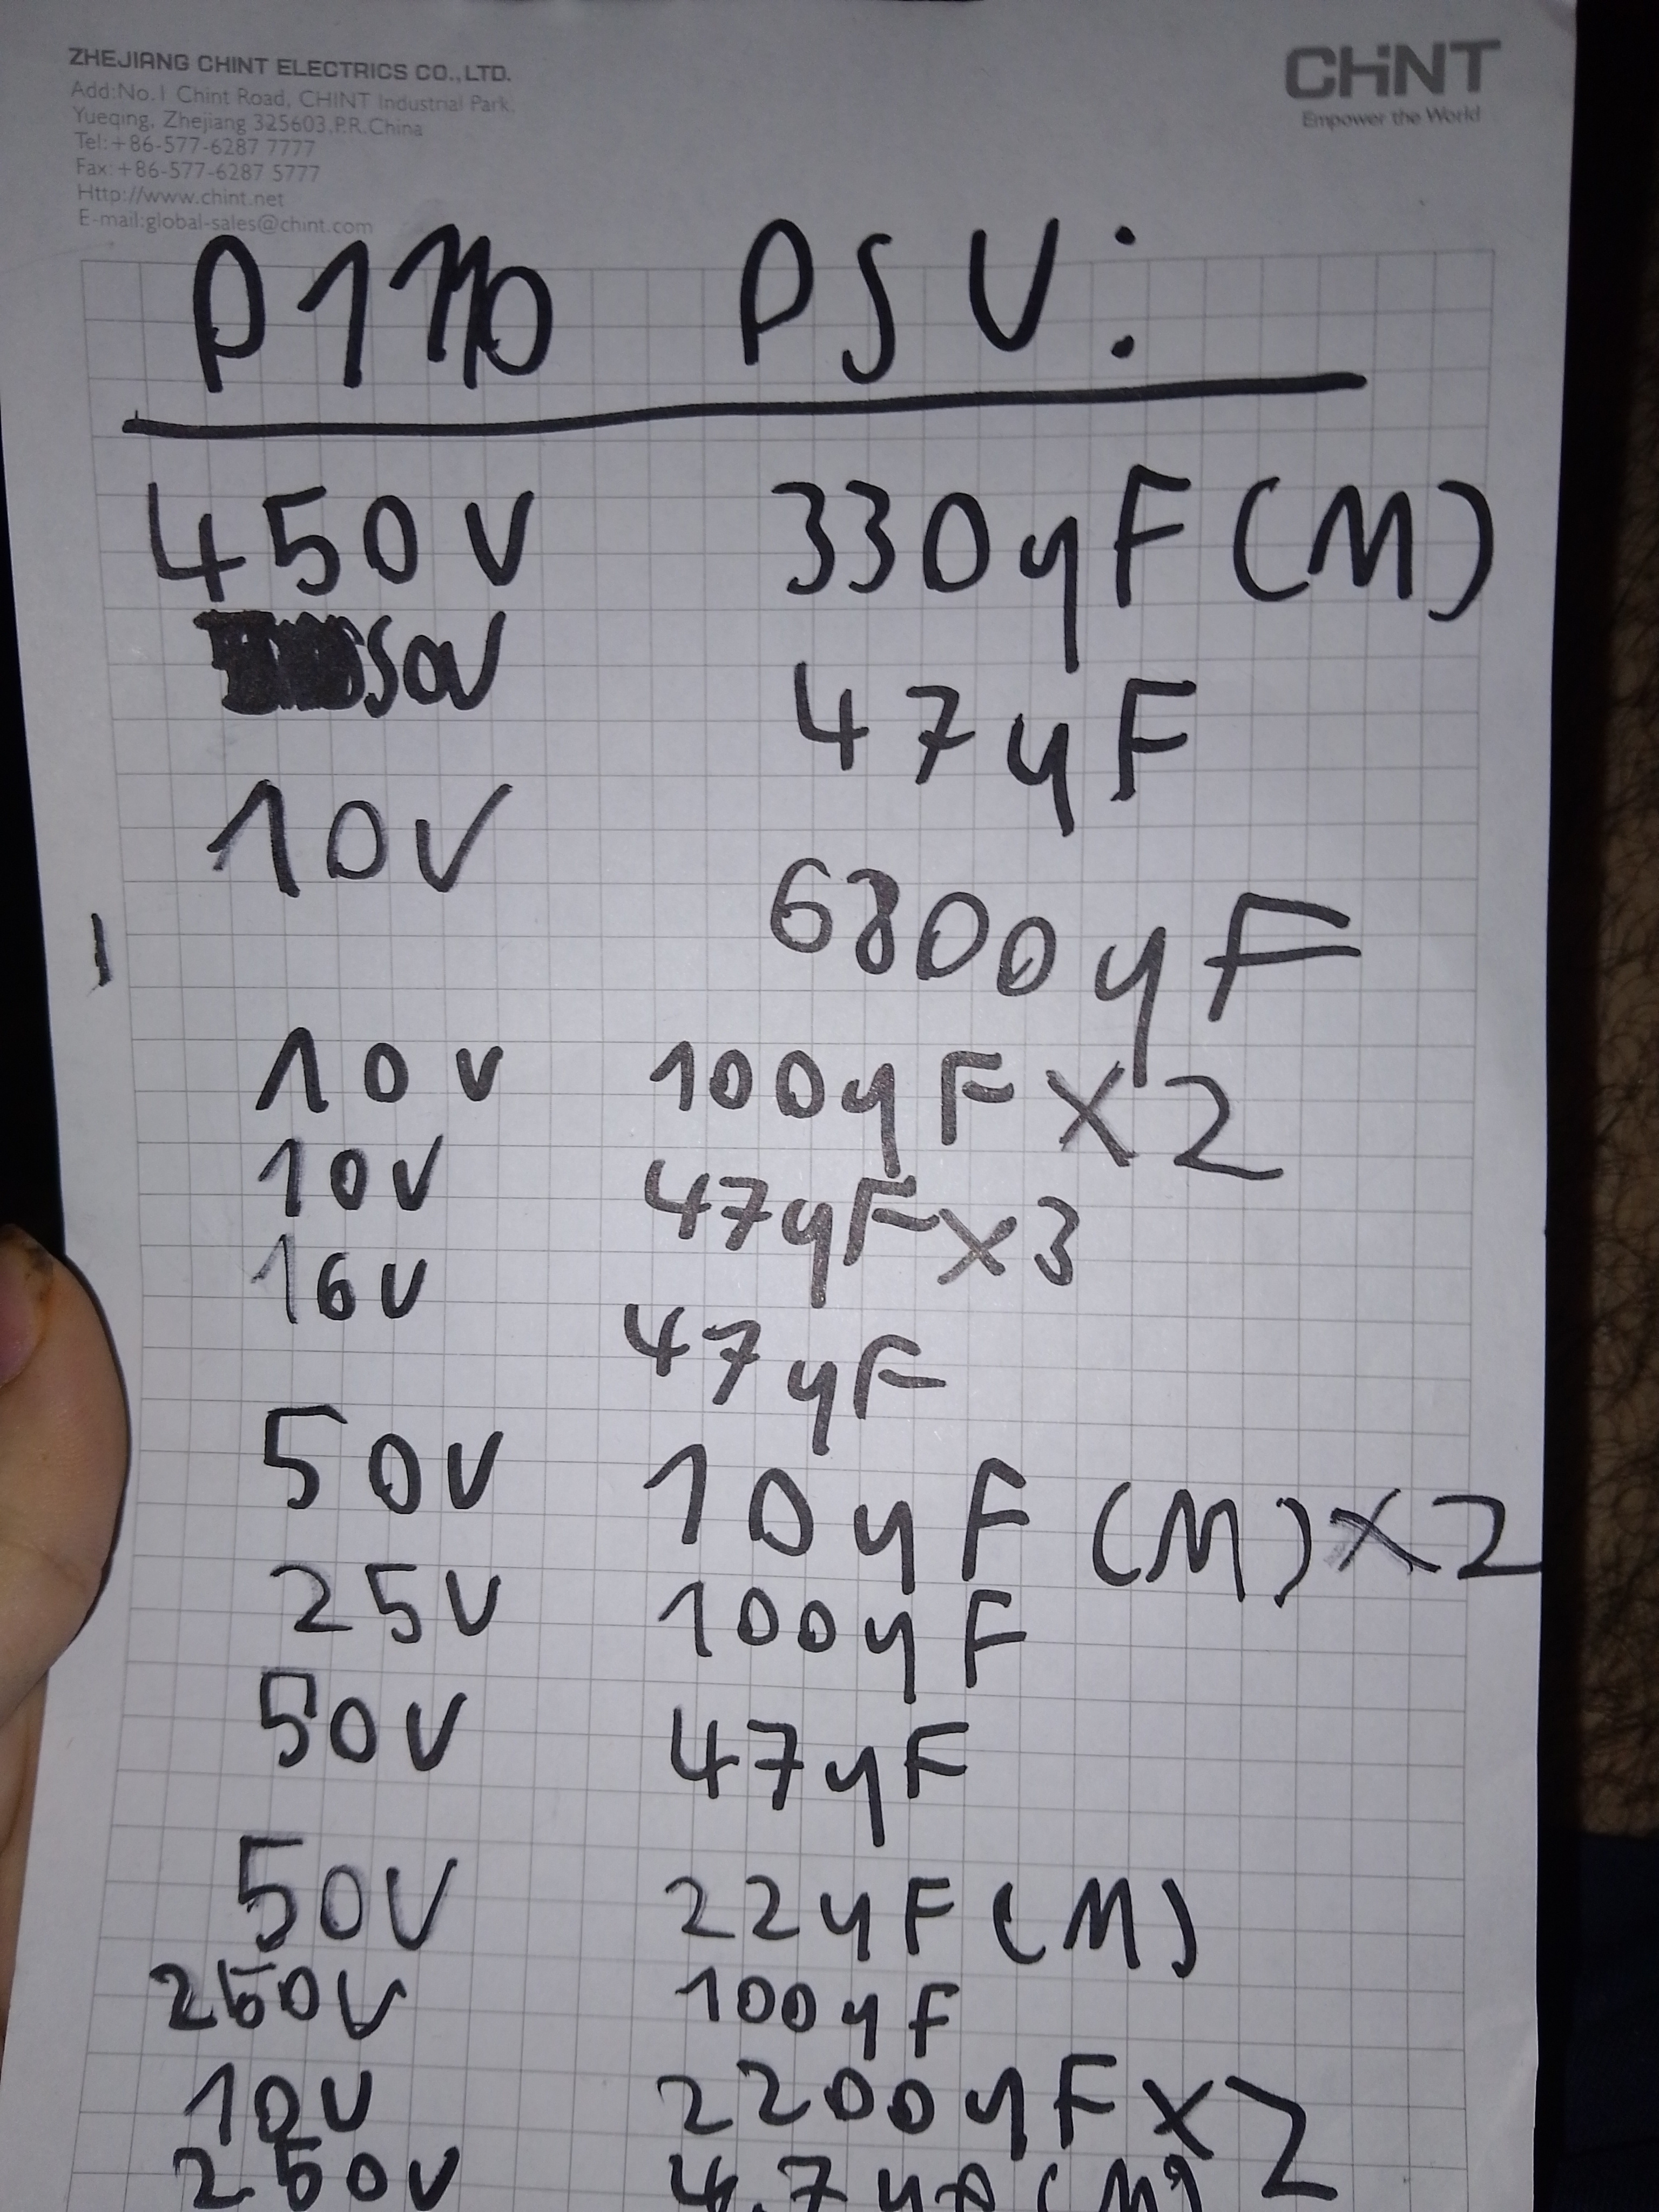 ZHEJIANG CHINT ELECTRICS CO.,LTD.
Add:No.1 Chint Road, CHINT Industrial Park,
Yueqing, Zhejiang 325603,P.R.China
Tel:+86-577-6287 7777
Fax:+86-577-6287 5777
Http://www.chint.net
E-mail:global-sales@chint.com
CHINT
Empower the World
PSU:
450V 330yF(M)
50V 47yF
10V 6800yF
10V 100yF x2
10V 47yF x3
16V 47yF
50V 10yF (M) x2
25V 100yF
50V 47yF
50V 22yF (M)
250V 100yF
10V 2200yF x2
250V 4.7yF (M)